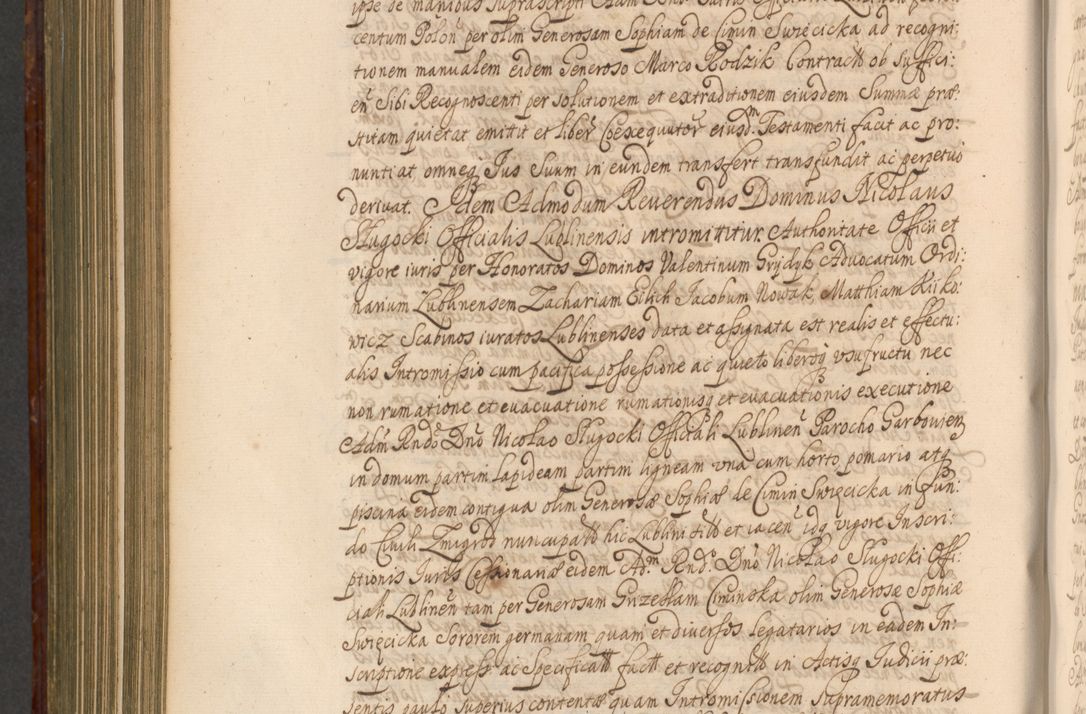 ipse de manibus suprascripti Adm Rndi Patris
centum Polon per olim Generosam Sophiam de Cimin Swięcicka ad recogni:
tionem manualem eidem Generoso Marco Rodzik Contractt ob suffici:
en Sibi Recognoscenti per solutionem et extraditionem eiusdem Summæ præ:
stitam quietat emittit et liber Coexequutor eiusdm Testamenti facit ac pro:
nuntiat omneq Ius Suum in eundem transfert transfundit ac perpetuo
deriuat. Idem Admodum Reuerendus Dominus Nicolaus
Sługocki Officialis Lublinensis intromittitur Authoritate Officii et
vigore iuris per Honoratos Dominos Valentinum Grydyk Aduocatum Ordi:
narium Lublinensem Zachariam Eilich Jacobum Nowak Matthiam Kiiko:
wicz Scabinos iuratos Lublinenses data et assignata est realis et effectu:
alis Intromissio cum pacifica possessione ac quieto liberoq vsufructu nec
non rumatione et euacuatione rumationisq et euacuationis executione
Adm Rndo Dno Nicolao Sługocki Officiali Lublinen Parocho Garbouien
in domum partim lapideam partim ligneam vna cum horto pomario atq
piscina eidem contigua olim Generosæ Sophiæ de Cimin Swięcicka in Fun:
do Ciuili Zmigrod nuncupatto hic Lublini sitto et iacen idq vigore Inscri:
ptionis Iuris Cessionariæ eidem Adm Rndo Dno Nicolao Sługocki Offi:
ciali Lublinen tam per Generosam Gnzedlam Ciminska olim Generosæ Sophiæ
Swięcicka Sororem germanam quam et diuersos legatarios in eadem In:
scriptione express ac Specificatt factt et recognitt in Actisq Iudicii præ:
sentis paulo superius contentæ quam Intromissionem Supramemoratus